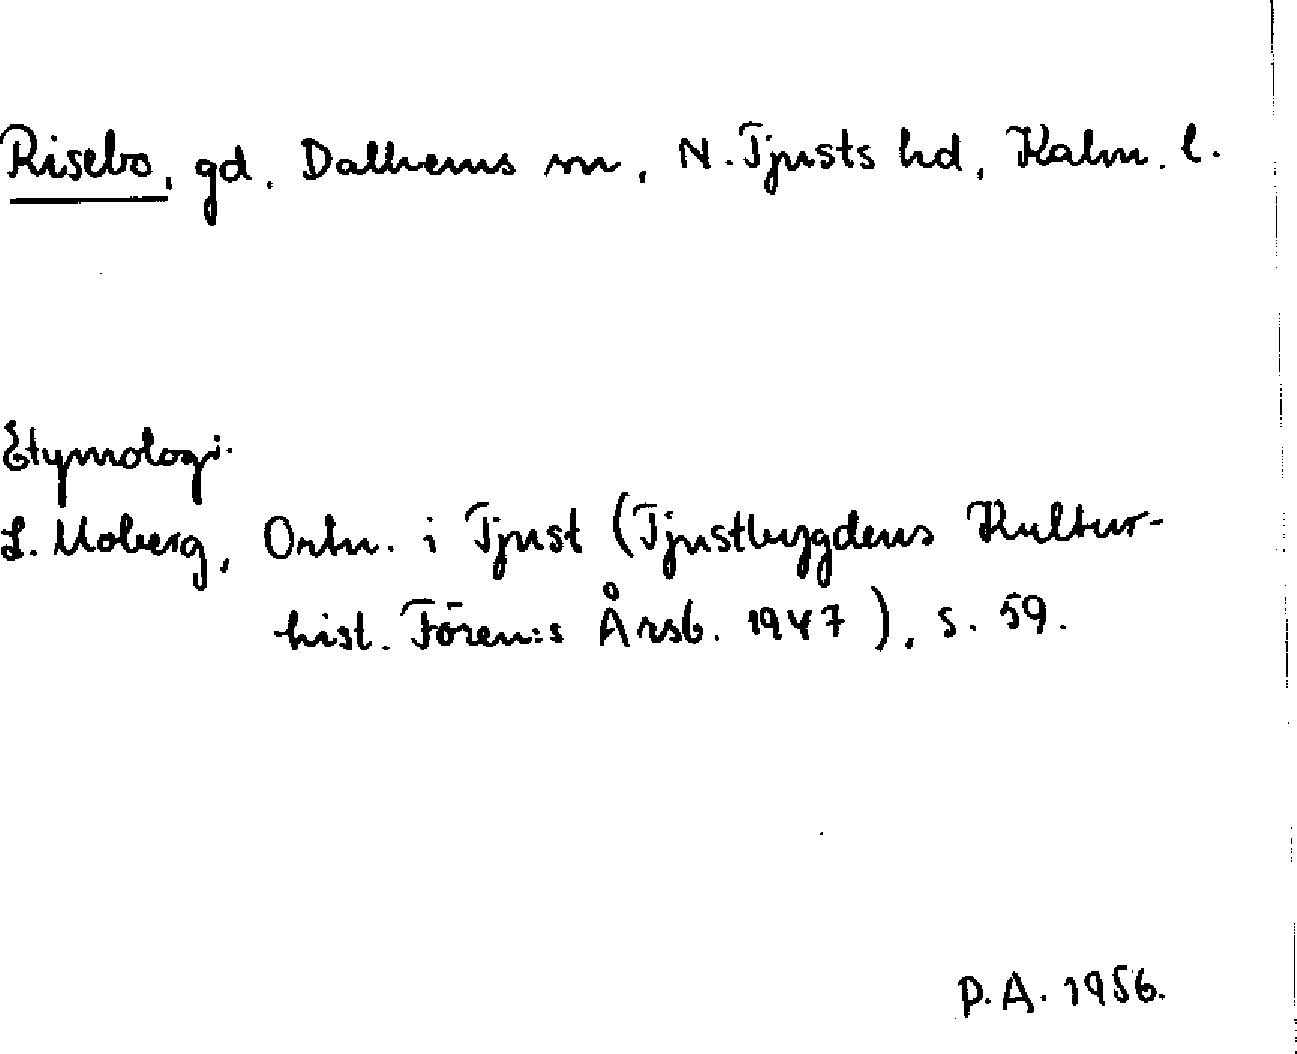 Risebo, gd. Dalhems sn, N. Tjusts hd, Kalm. l.
Etymologi.
L. Moberg, Ortn. i Tjust (Tjustbygdens Kultur-
hist. Fören:s Årsb. 1947), s. 59.
P.A. 1956.